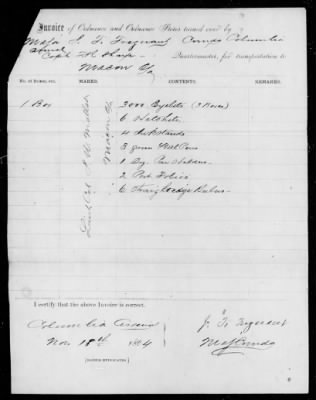 Invoice of Ordnance and Ordnance Stores turned over by
Maj J. T. Trezevant Comdg Columbia
Arsenal Capt F. R. Sharp Quartermaster, for transportation to
Macon Ga
No. of Boxes, etc. MARKS. CONTENTS. REMARKS.
1 Box
Macon Ga
3000 Eyelets (3 Boxes)
6
4 Inkstands
3 gross Steel Pens
1 Pen Holders
2 Port Folios
6 Rulers
I certify that the above Invoice is correct.
Columbia Arsenal
Nov 18th 1864
J. T. Trezevant
Maj Comdg